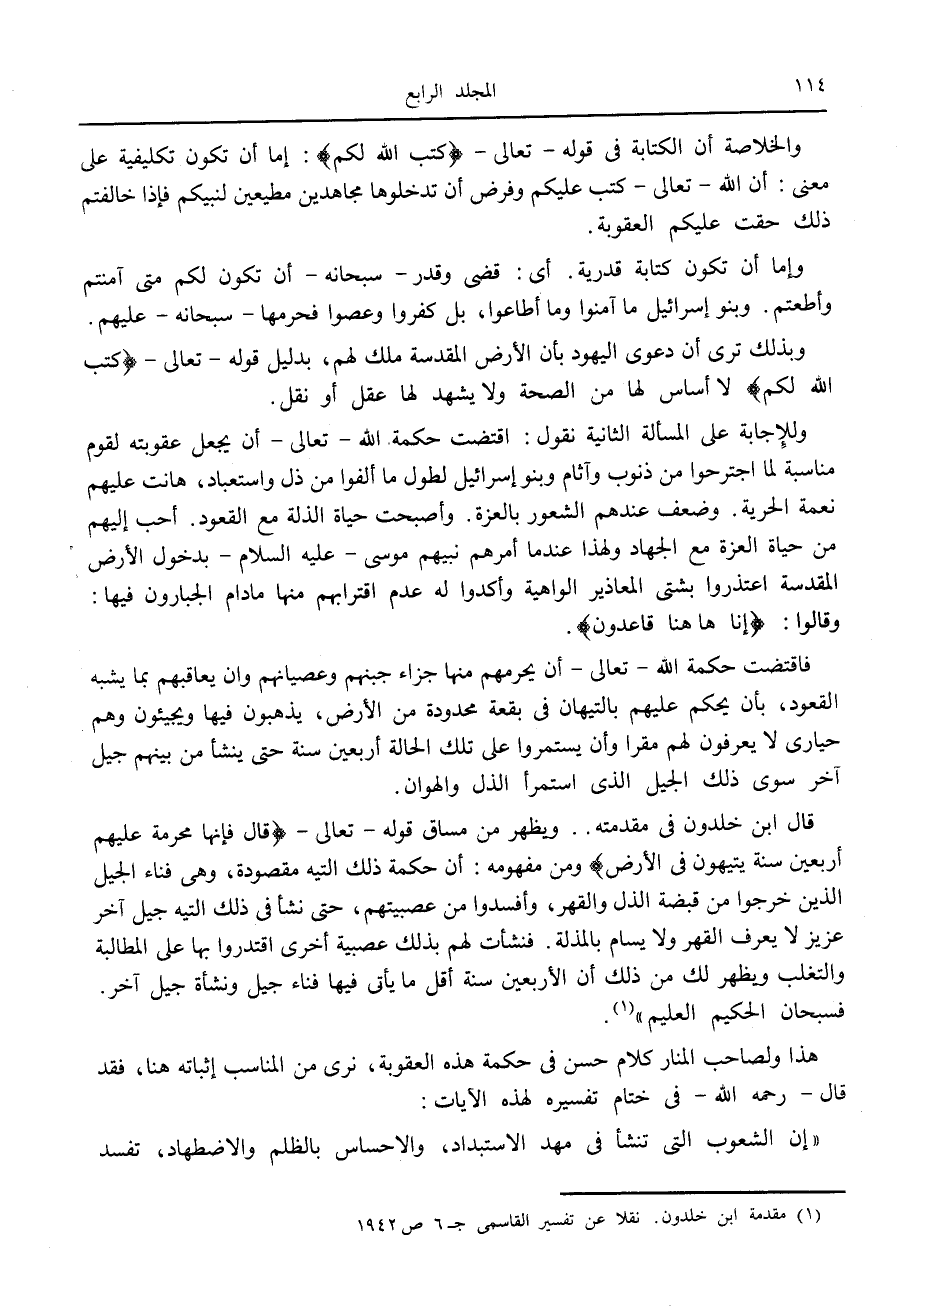 ١١٤
المجلد الرابع
والخلاصة أن الكتابة فى قوله - تعالى - ﴿كتب الله لكم﴾ : إما أن تكون تكليفية على
معنى : أن الله - تعالى - كتب عليكم وفرض أن تدخلوها مجاهدين مطيعين لنبيكم فإذا خالفتم
ذلك حقت عليكم العقوبة.
وإما أن تكون كتابة قدرية. أى : قضى وقدر - سبحانه - أن تكون لكم متى آمنتم
وأطعتم. وبنو إسرائيل ما آمنوا وما أطاعوا، بل كفروا وعصوا فحرمها - سبحانه - عليهم.
وبذلك ترى أن دعوى اليهود بأن الأرض المقدسة ملك لهم، بدليل قوله - تعالى - ﴿كتب
الله لكم﴾ لا أساس لها من الصحة ولا يشهد لها عقل أو نقل.
وللإجابة على المسألة الثانية نقول : اقتضت حكمة الله - تعالى - أن يجعل عقوبته لقوم
مناسبة لما اجترحوا من ذنوب وآثام وبنو إسرائيل لطول ما ألفوا من ذل واستعباد، هانت عليهم
نعمة الحرية. وضعف عندهم الشعور بالعزة. وأصبحت حياة الذلة مع القعود. أحب إليهم
من حياة العزة مع الجهاد ولهذا عندما أمرهم نبيهم موسى - عليه السلام - بدخول الأرض
المقدسة اعتذروا بشتى المعاذير الواهية وأكدوا له عدم اقترابهم منها مادام الجبارون فيها :
وقالوا : ﴿إنا ها هنا قاعدون﴾.
فاقتضت حكمة الله - تعالى - أن يحرمهم منها جزاء جبنهم وعصيانهم وان يعاقبهم بما يشبه
القعود، بأن يحكم عليهم بالتيهان فى بقعة محدودة من الأرض، يذهبون فيها ويجيئون وهم
حيارى لا يعرفون لهم مقرا وأن يستمروا على تلك الحالة أربعين سنة حتى ينشأ من بينهم جيل
آخر سوى ذلك الجيل الذى استمرأ الذل والهوان.
قال ابن خلدون فى مقدمته.. ويظهر من مساق قوله - تعالى - ﴿قال فإنها محرمة عليهم
أربعين سنة يتيهون فى الأرض﴾ ومن مفهومه : أن حكمة ذلك التيه مقصودة، وهى فناء الجيل
الذين خرجوا من قبضة الذل والقهر، وأفسدوا من عصبيتهم، حتى نشأ فى ذلك التيه جيل آخر
عزيز لا يعرف القهر ولا يسام بالمذلة. فنشأت لهم بذلك عصبية أخرى اقتدروا بها على المطالبة
والتغلب ويظهر لك من ذلك أن الأربعين سنة أقل ما يأتى فيها فناء جيل ونشأة جيل آخر.
فسبحان الحكيم العليم»(١).
هذا ولصاحب المنار كلام حسن فى حكمة هذه العقوبة، نرى من المناسب إثباته هنا، فقد
قال - رحمه الله - فى ختام تفسيره لهذه الآيات :
«إن الشعوب التى تنشأ فى مهد الاستبداد، والاحساس بالظلم والاضطهاد، تفسد
(١) مقدمة ابن خلدون. نقلا عن تفسير القاسمى جـ ٦ ص ١٩٤٢